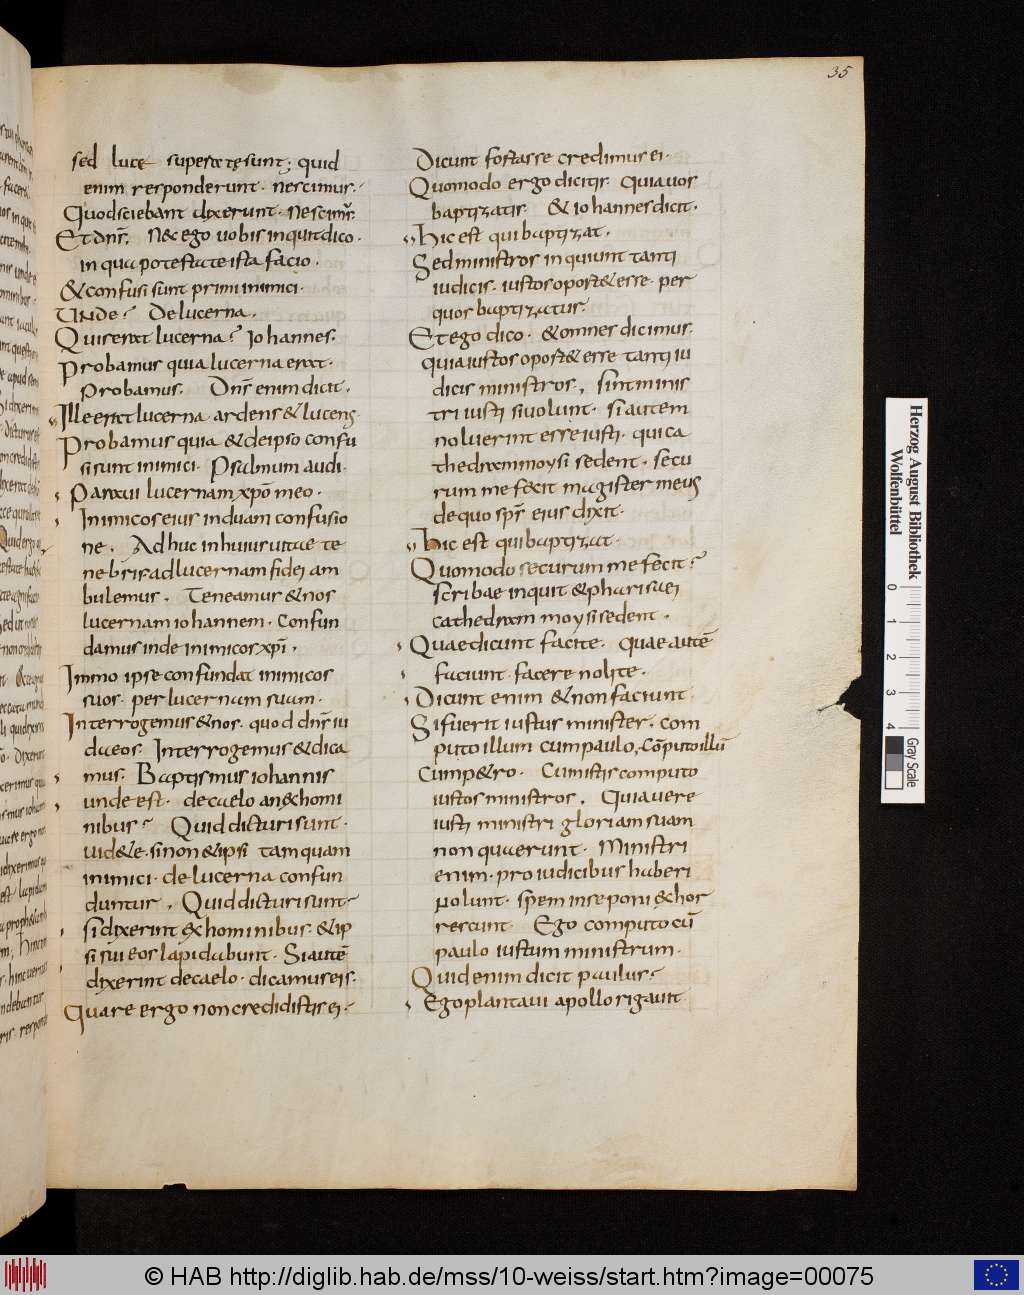 35
sed luce superatę sunt; quid
enim responderunt. nescimus.
Quod sciebant dixerunt. Nescimꝰ.
Et dn̄s. Nec ego uobis inquit dico.
in qua potestate ista facio.
& confusi sunt primi inimici.
UNde? De lucerna.
Quis erat lucerna? Iohannes.
Probamus quia lucerna erat.
Probamus. Dn̄s enim dicit.
Ille erat lucerna ardens & lucens
Probamus quia & de ipso confu
si sunt inimici. Psalmum audi.
Paraui lucernam xp̄o meo.
Inimicos eius induam confusio
ne. Ad huc in huius uitae te
nebris ad lucernam fidei am
bulemus. Teneamus & nos
lucernam iohannem. Confun
damus inde inimicos xp̄i.
Immo ipse confundat inimicos
suos. per lucernam suam.
Interrogemus & nos. quod dn̄s iu
daeos. Interrogemus & dica
mus. Baptismus iohannis
unde est. de caelo an ex homi
nibus? Quid dicturi sunt.
uid&e. si non & ipsi tamquam
inimici. de lucerna confun
duntur. Quid dicturi sunt?
si dixerint ex hominibus. & ip
si sui eos lapidabunt. Si autē
dixerint de caelo. dicamus eis.
Quare ergo non credidistis ei.
Dicunt fortasse credimus ei.
Quomodo ergo dicitis. Quia uos
baptizatis. & iohannes dicit.
Hic est qui baptizat.
Sed ministros inquiunt tanti
iudicis. iustos oport& esse. per
quos baptizatur.
Et ego dico. & omnes dicimus.
quia iustos oport& esse tanti iu
dicis ministros. sint minis
tri iusti si uolunt. si autem
noluerint esse iusti. qui ca
thedram moysi sedent. secu
rum me fecit magister meus
de quo sp̄s eius dixit.
Hic est qui baptizat.
Quomodo securum me fecit?
scribae inquit & pharisaei
cathedram moysi sedent.
Quae dicunt facite. quae autē
faciunt. facere nolite.
Dicunt enim & non faciunt.
Si fuerit iustus minister. com
puto illum cum paulo. Cōputo illū
Cum p&ro. Cum istis computo
iustos ministros. Quia uere
iusti ministri gloriam suam
non quaerunt. Ministri
enim. pro iudicibus haberi
nolunt. spem in se poni exhor
rescunt. Ego computo cū
paulo iustum ministrum.
Quid enim dicit paulus?
Ego plantaui apollo rigauit
Herzog August Bibliothek
Wolfenbüttel
0 1 2 3 4
Gray Scale
© HAB http://diglib.hab.de/mss/10-weiss/start.htm?image=00075